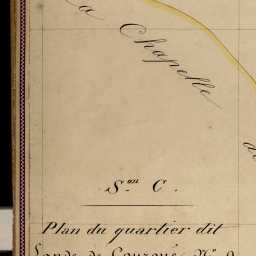 a Chapelle
S.on C.
Plan du quartier dit
Lande de